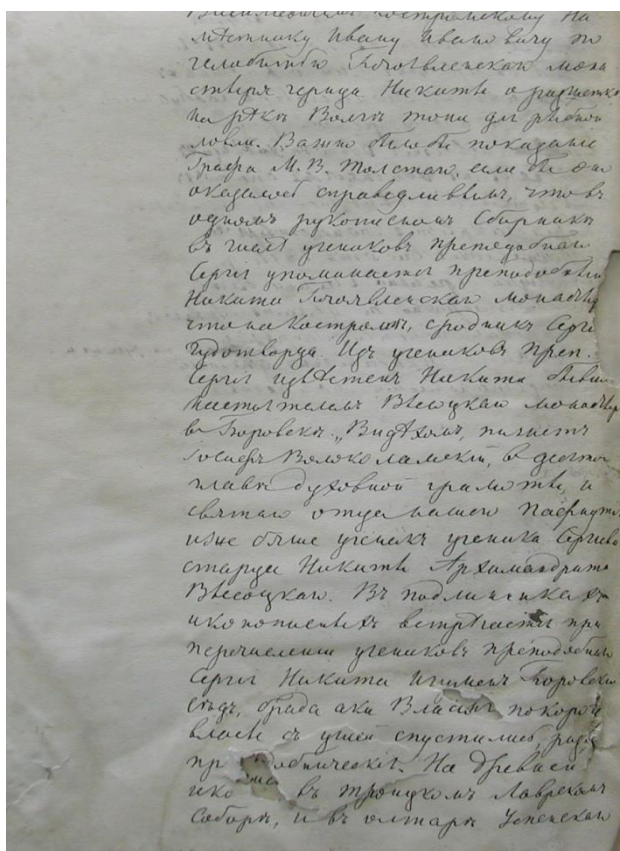 Васильевичемъ костромскому на
мѣстнику Ивану Ивановичу по
челобитью Богоявленскаго мона
стыря чернца Никиты о разчисткѣ
на рѣкѣ Волгѣ тони для рыбной
ловли. Важно было бы показанiе
Графа М. В. Толстаго, если бы оно
оказалось справедливымъ, что въ
одномъ рукописномъ Сборникѣ
въ числѣ учениковъ преподобнаго
Сергiя упоминается преподобный
Никита Богоявленскаго монастыр
что на Костромѣ, сродникъ Серг
Чудотворца. Изъ учениковъ преп.
Сергiя извѣстенъ Никита бывш
настоятелемъ Высоцкаго монастыр
въ Боровскѣ. „Видѣхомъ, пишетъ
Iосифъ Волоколамскiй, въ десятой
главѣ духовной грамоты, и
святаго отца нашего Пафнутiя
иже бяше ученикъ ученика Сергiева
старца Никиты Архимандрита
Высоцкаго. Въ подлинникахъ
иконописныхъ встрѣчается при
перечисленiи учениковъ преподобнаго
Сергiя Никита Игуменъ Боровскiй
сѣдъ, брада аки Власiя покороче
власы съ ушей спустились, ризы
пр добническiя. На древней
ико въ Троицкомъ Лаврскомъ
Соборѣ, и въ олтарѣ Успенскаго